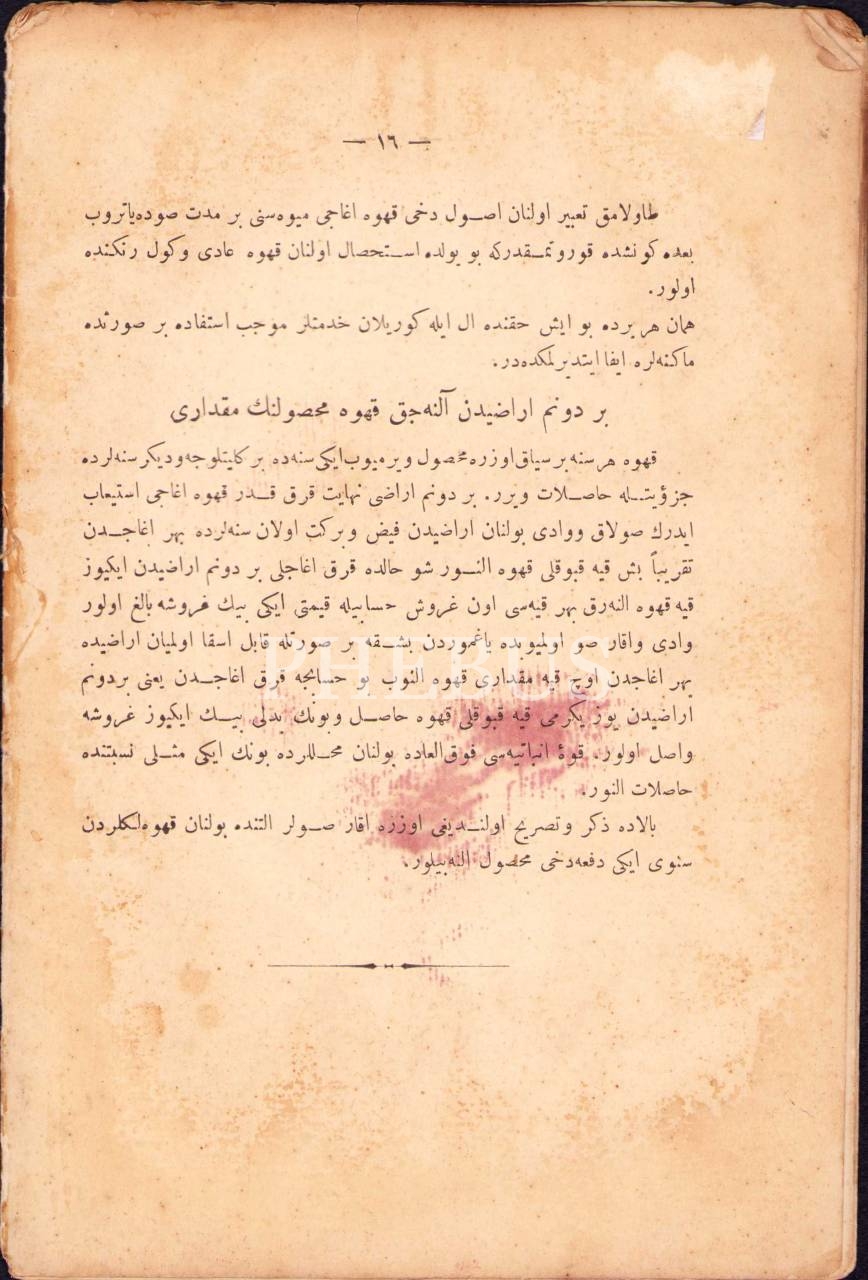 — ١٦ —
طاولامق تعبیر اولنان اصول دخی قهوه اغاجی میوه‌سنی بر مدت صوده یاتروب
بعده کونشده قوروتمقدرکه بو یولده استحصال اولنان قهوه عادی وکول رنکنده
اولور.
همان هر یرده بو ایش حقنده ال ایله کوریلان خدمتلر موجب استفاده بر صورتده
ماکنه‌لره ایفا ایتدیرلمکده‌در.
بر دونم اراضیدن آلنه‌جق قهوه محصولنك مقداری
قهوه هر سنه بر سیاق اوزره محصول ویرمیوب ایکی سنه‌ده بر کلیتلوجه و دیکر سنه‌لرده
جزؤیتله حاصلات ویرر. بر دونم اراضی نهایت قرق قدر قهوه اغاجی استیعاب
ایدرك صولاق ووادی بولنان اراضیدن فیض وبرکت اولان سنه‌لرده بهر اغاجدن
تقریباً بش قیه قبوقلی قهوه النور شو حالده قرق اغاجلی بر دونم اراضیدن ایکیوز
قیه قهوه النه‌رق بهر قیه‌سی اون غروش حسابیله قیمتی ایکی بیك غروشه بالغ اولور
وادی واقار صو اولمیوبده یاغموردن بشقه بر صورتله قابل اسقا اولمیان اراضیده
بهر اغاجدن اوچ قیه مقداری قهوه النوب بو حسابجه قرق اغاجدن یعنی بر دونم
اراضیدن یوز یکرمی قیه قبوقلی قهوه حاصل وبونك بدلی بیك ایکیوز غروشه
واصل اولور. قوۀ انباتیه‌سی فوق‌العاده بولنان محللرده بونك ایکی مثلی نسبتنده
حاصلات النور.
بالاده ذکر وتصریح اولندیغی اوزره اقار صولر التنده بولنان قهوه‌لکلردن
سنوی ایکی دفعه دخی محصول النه‌بیلور.
PHEBUS